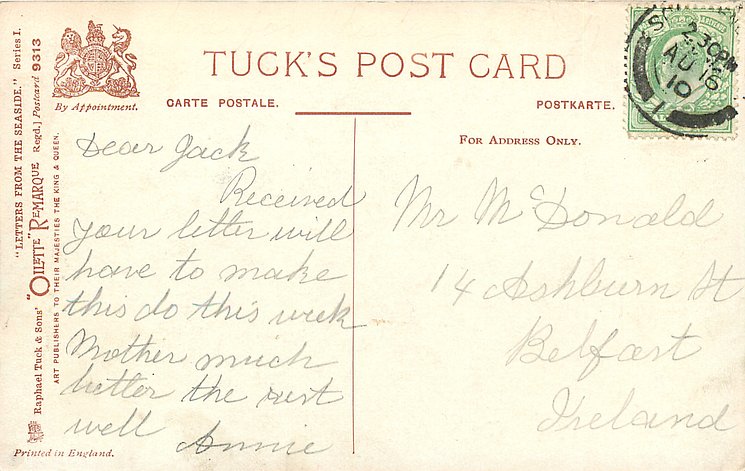 "LETTERS FROM THE SEASIDE." Series I.
Raphael Tuck & Sons' "OILETTE" REMARQUE Regd.] Postcard 9313
ART PUBLISHERS TO THEIR MAJESTIES THE KING & QUEEN.
By Appointment.
TUCK'S POST CARD
CARTE POSTALE.
POSTKARTE.
FOR ADDRESS ONLY.
2 30PM
AU 16
10
Dear Jack
Received
your letter will
have to make
this do this week
Mother much
better the rest
well Annie
Mr McDonald
14 Ashburn St
Belfast
Ireland
Printed in England.